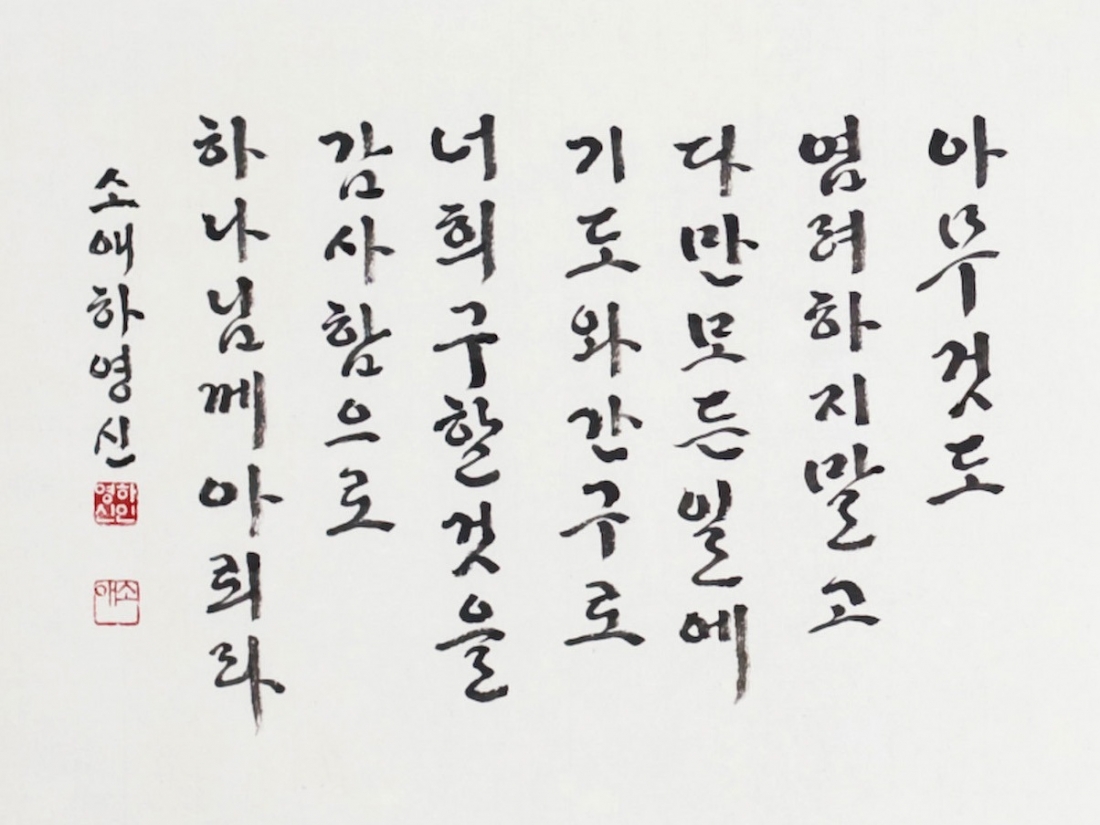 아무것도
염려하지말고
다만모든일에
기도와간구로
너희구할것을
감사함으로
하나님께아뢰라
소애하영신
하영신인
소애